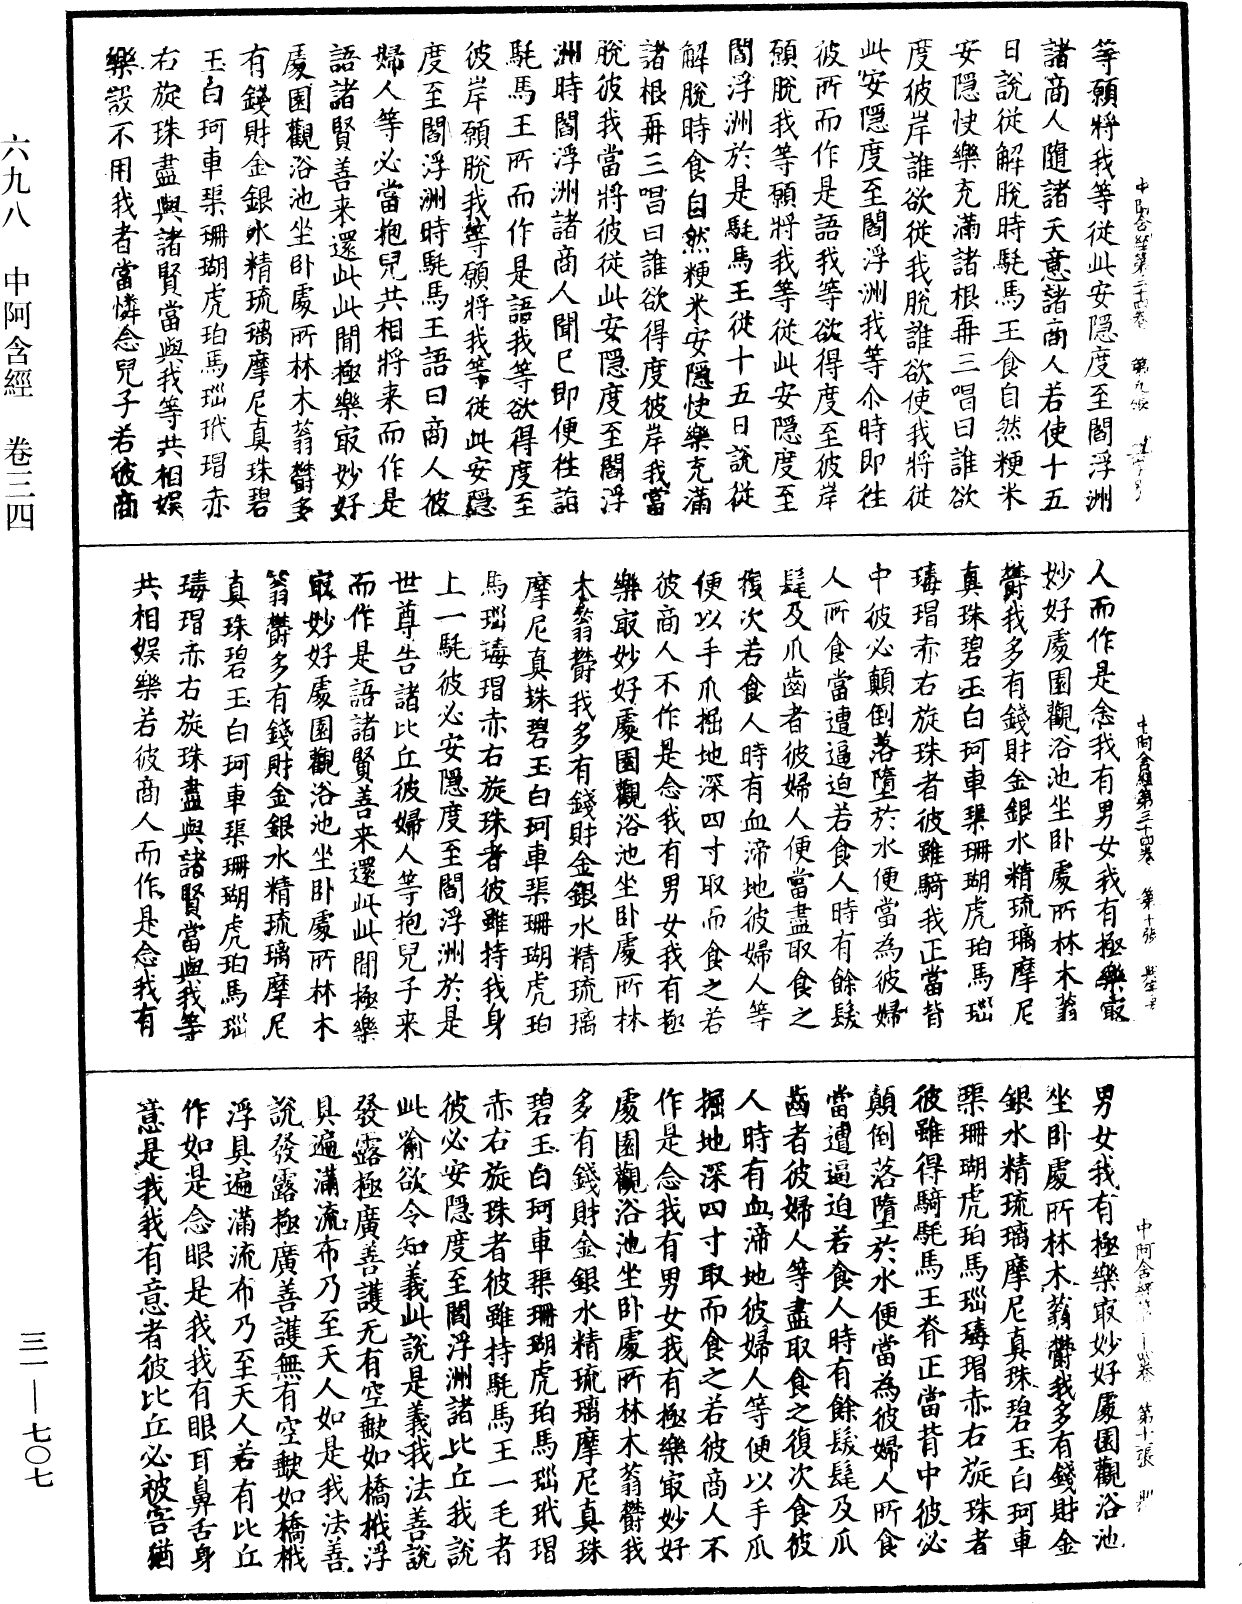 等願將我等從此安隱度至閻浮洲
諸商人隨諸天意諸商人若使十五
日說從解脫時駹馬王食自然粳米
安隱快樂充滿諸根再三唱曰誰欲
度彼岸誰欲從我脫誰欲使我將從
此安隱度至閻浮洲我等尒時即往
彼所而作是語我等欲得度至彼岸
願脫我等願將我等從此安隱度至
閻浮洲於是駹馬王從十五日說從
解脫時食自然粳米安隱快樂充滿
諸根再三唱曰誰欲得度彼岸我當
脫彼我當將彼從此安隱度至閻浮
洲時閻浮洲諸商人聞已即便往詣
駹馬王所而作是語我等欲得度至
彼岸願脫我等願將我等從此安隱
度至閻浮洲時駹馬王語曰商人彼
婦人等必當抱兒共相將来而作是
語諸賢善来還此此間極樂㝡妙好
處園觀浴池坐卧處所林木蓊欝多
有錢財金銀水精琉璃摩尼真珠碧
玉白珂車渠珊瑚虎珀馬瑙玳瑁赤
右旋珠盡與諸賢當與我等共相娛
樂設不用我者當憐念兒子若彼商
中阿含經第三十四卷 第九張
人而作是念我有男女我有極樂㝡
妙好處園觀浴池坐卧處所林木蓊
欝我多有錢財金銀水精琉璃摩尼
真珠碧玉白珂車渠珊瑚虎珀馬瑙
瑇瑁赤右旋珠者彼雖騎我正當背
中彼必顛倒落墮於水便當為彼婦
人所食當遭逼迫若食人時有餘髮
髦及爪齒者彼婦人便當盡取食之
復次若食人時有血渧地彼婦人等
便以手爪掘地深四寸取而食之若
彼商人不作是念我有男女我有極
樂㝡妙好處園觀浴池坐卧處所林
木蓊欝我多有錢財金銀水精琉璃
摩尼真珠碧玉白珂車渠珊瑚虎珀
馬瑙瑇瑁赤右旋珠者彼雖持我身
上一駹彼必安隱度至閻浮洲於是
世尊告諸比丘彼婦人等抱兒子来
而作是語諸賢善来還此此間極樂
㝡妙好處園觀浴池坐卧處所林木
蓊欝多有錢財金銀水精琉璃摩尼
真珠碧玉白珂車渠珊瑚虎珀馬瑙
瑇瑁赤右旋珠盡與諸賢當與我等
共相娛樂若彼商人而作是念我有
中阿含經第三十四卷 第十張
男女我有極樂㝡妙好處園觀浴池
坐卧處所林木蓊欝我多有錢財金
銀水精琉璃摩尼真珠碧玉白珂車
渠珊瑚虎珀馬瑙瑇瑁赤右旋珠者
彼雖得騎駹馬王脊正當背中彼必
顛倒落墮於水便當為彼婦人所食
當遭逼迫若食人時有餘髮髦及爪
齒者彼婦人等盡取食之復次食彼
人時有血渧地彼婦人等便以手爪
掘地深四寸取而食之若彼商人不
作是念我有男女我有極樂㝡妙好
處園觀浴池坐卧處所林木蓊欝我
多有錢財金銀水精琉璃摩尼真珠
碧玉白珂車渠珊瑚虎珀馬瑙玳瑁
赤右旋珠者彼雖持駹馬王一毛者
彼必安隱度至閻浮洲諸比丘我說
此喻欲令知義此說是義我法善說
發露極廣善護无有空缺如橋栰浮
具遍滿流布乃至天人如是我法善
說發露極廣善護無有空缺如橋栰
浮具遍滿流布乃至天人若有比丘
作如是念眼是我我有眼耳鼻舌身
意是我我有意者彼比丘必被害猶
中阿含經第三十四卷 第十一張
六九八 中阿含經 卷三四
三一—七〇七